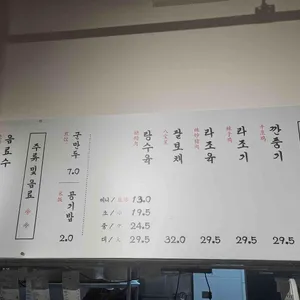 음료수
주류 및 음료
군만두
7.0
공기밥
2.0
탕수육
미니 / 13.0
소 / 小 19.5
중 / 中 24.5
대 / 大 29.5
팔보채
八宝菜
32.0
라조육
29.5
라조기
辣子鸡
29.5
깐풍기
29.5